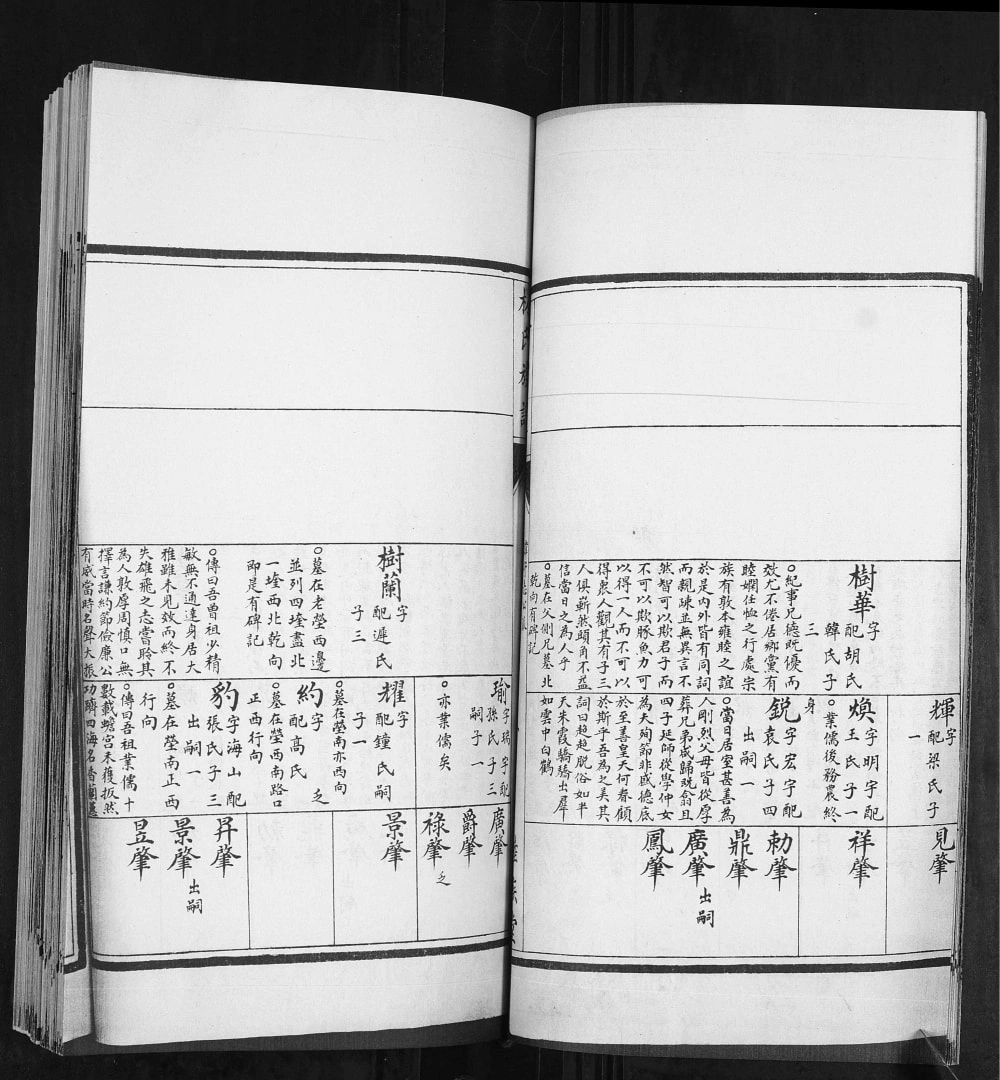 樹華字
配胡氏
韓氏子
三
○紀事兄德既優而
效尤不倦居鄉黨有
睦婣任恤之行處宗
族有敦本雍睦之誼
於是內外皆有同詞
而親疎並無異言不
然智可以欺君子而
不可以欺豚魚力可
以得一人而不可以
得衆人觀其有子三
人俱嶄然頭角不益
信當日之為人乎
○墓在父側兄墓北
乾向有碑記
輝字
配梁氏子
一
煥字明字配
王氏子一
○業儒後務農終
身
銳字宏字配
袁氏子四
出嗣一
○當日居室甚善為
人剛烈父母皆從厚
葬兄弟咸歸既翕且
四子延師從學仲女
為夫殉節非感德底
於至善皇天何眷顧
於斯乎吾為之美其
詞曰超超脫俗如半
天朱霞驕驕出羣
如雲中白鶴
見肇
祥肇
勅肇
鼎肇
廣肇出嗣
鳳肇
氏族
樹蘭字
配遲氏
子三
○墓在老塋西邊
並列四墖盡北
一墖西北乾向
即是有碑記
○傳曰吾曾祖少精
敏無不通達身居大
雅雖未見效而終不
失雄飛之志嘗聆其
為人敦厚周慎口無
擇言謙約節儉廉公
有威當時名聲大振
瑜字瑞字配
孫氏子三
嗣子一
○亦業儒矣
耀字
配鐘氏嗣
子一
○墓在塋南亦西向
約字
配高氏乏
○墓在塋西南路口
正西行向
豹字海山配
張氏子三
出嗣一
○墓在塋南正西
行向
○傳曰吾祖業儒十
數載蟾宮未獲扳然
廣肇
爵肇
祿肇乏
景肇
昇肇
景肇出嗣
昱肇